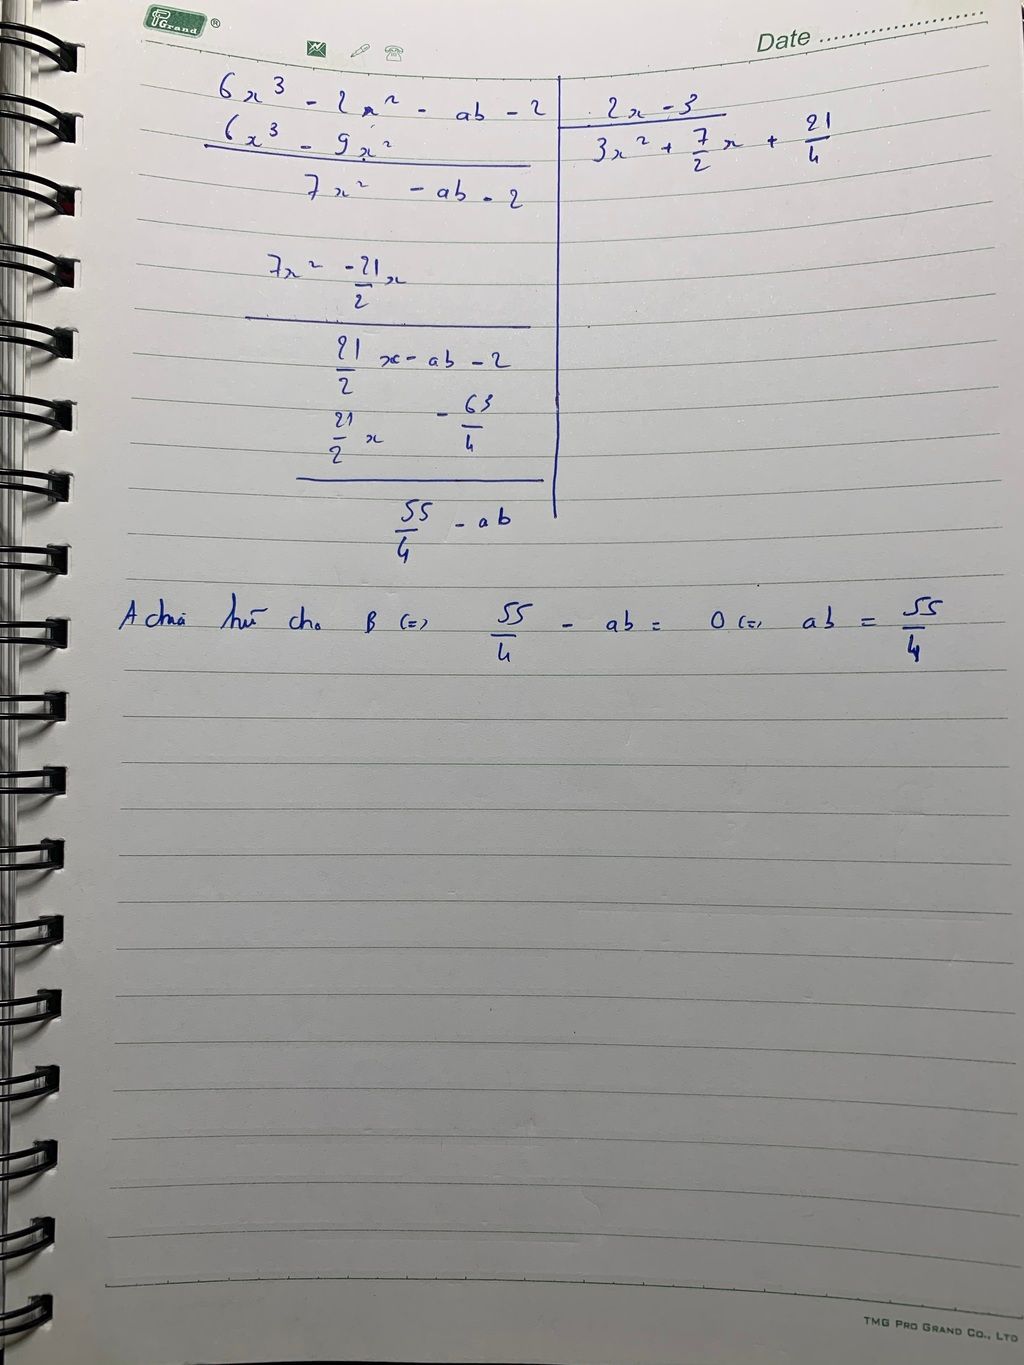 PGrand ®
Date ....................
6x³ - 2x² - ab - 2 | 2x - 3
6x³ - 9x² | 3x² + 7/2 x + 21/4
7x² - ab - 2
7x² - 21/2 x
21/2 x - ab - 2
21/2 x - 63/4
55/4 - ab
A chia hết cho B (=) 55/4 - ab = 0 (=) ab = 55/4
TMG PRO GRAND CO., LTD